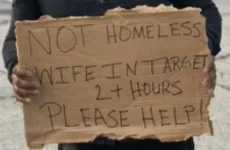 NOT HOMELESS
WIFE IN TARGET
2+ HOURS
PLEASE HELP!